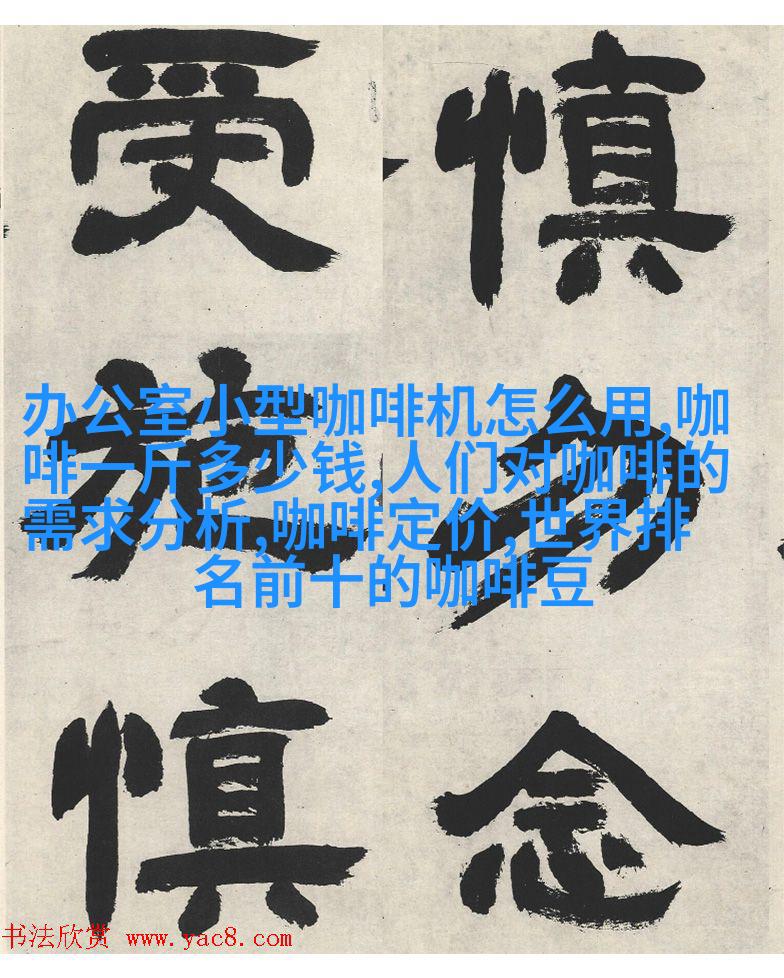 慎勿念
受施慎
办公室小型咖啡机怎么用,咖
啡一斤多少钱,人们对咖啡的
需求分析,咖啡定价,世界排
名前十的咖啡豆
书法欣赏 www.yac8.com